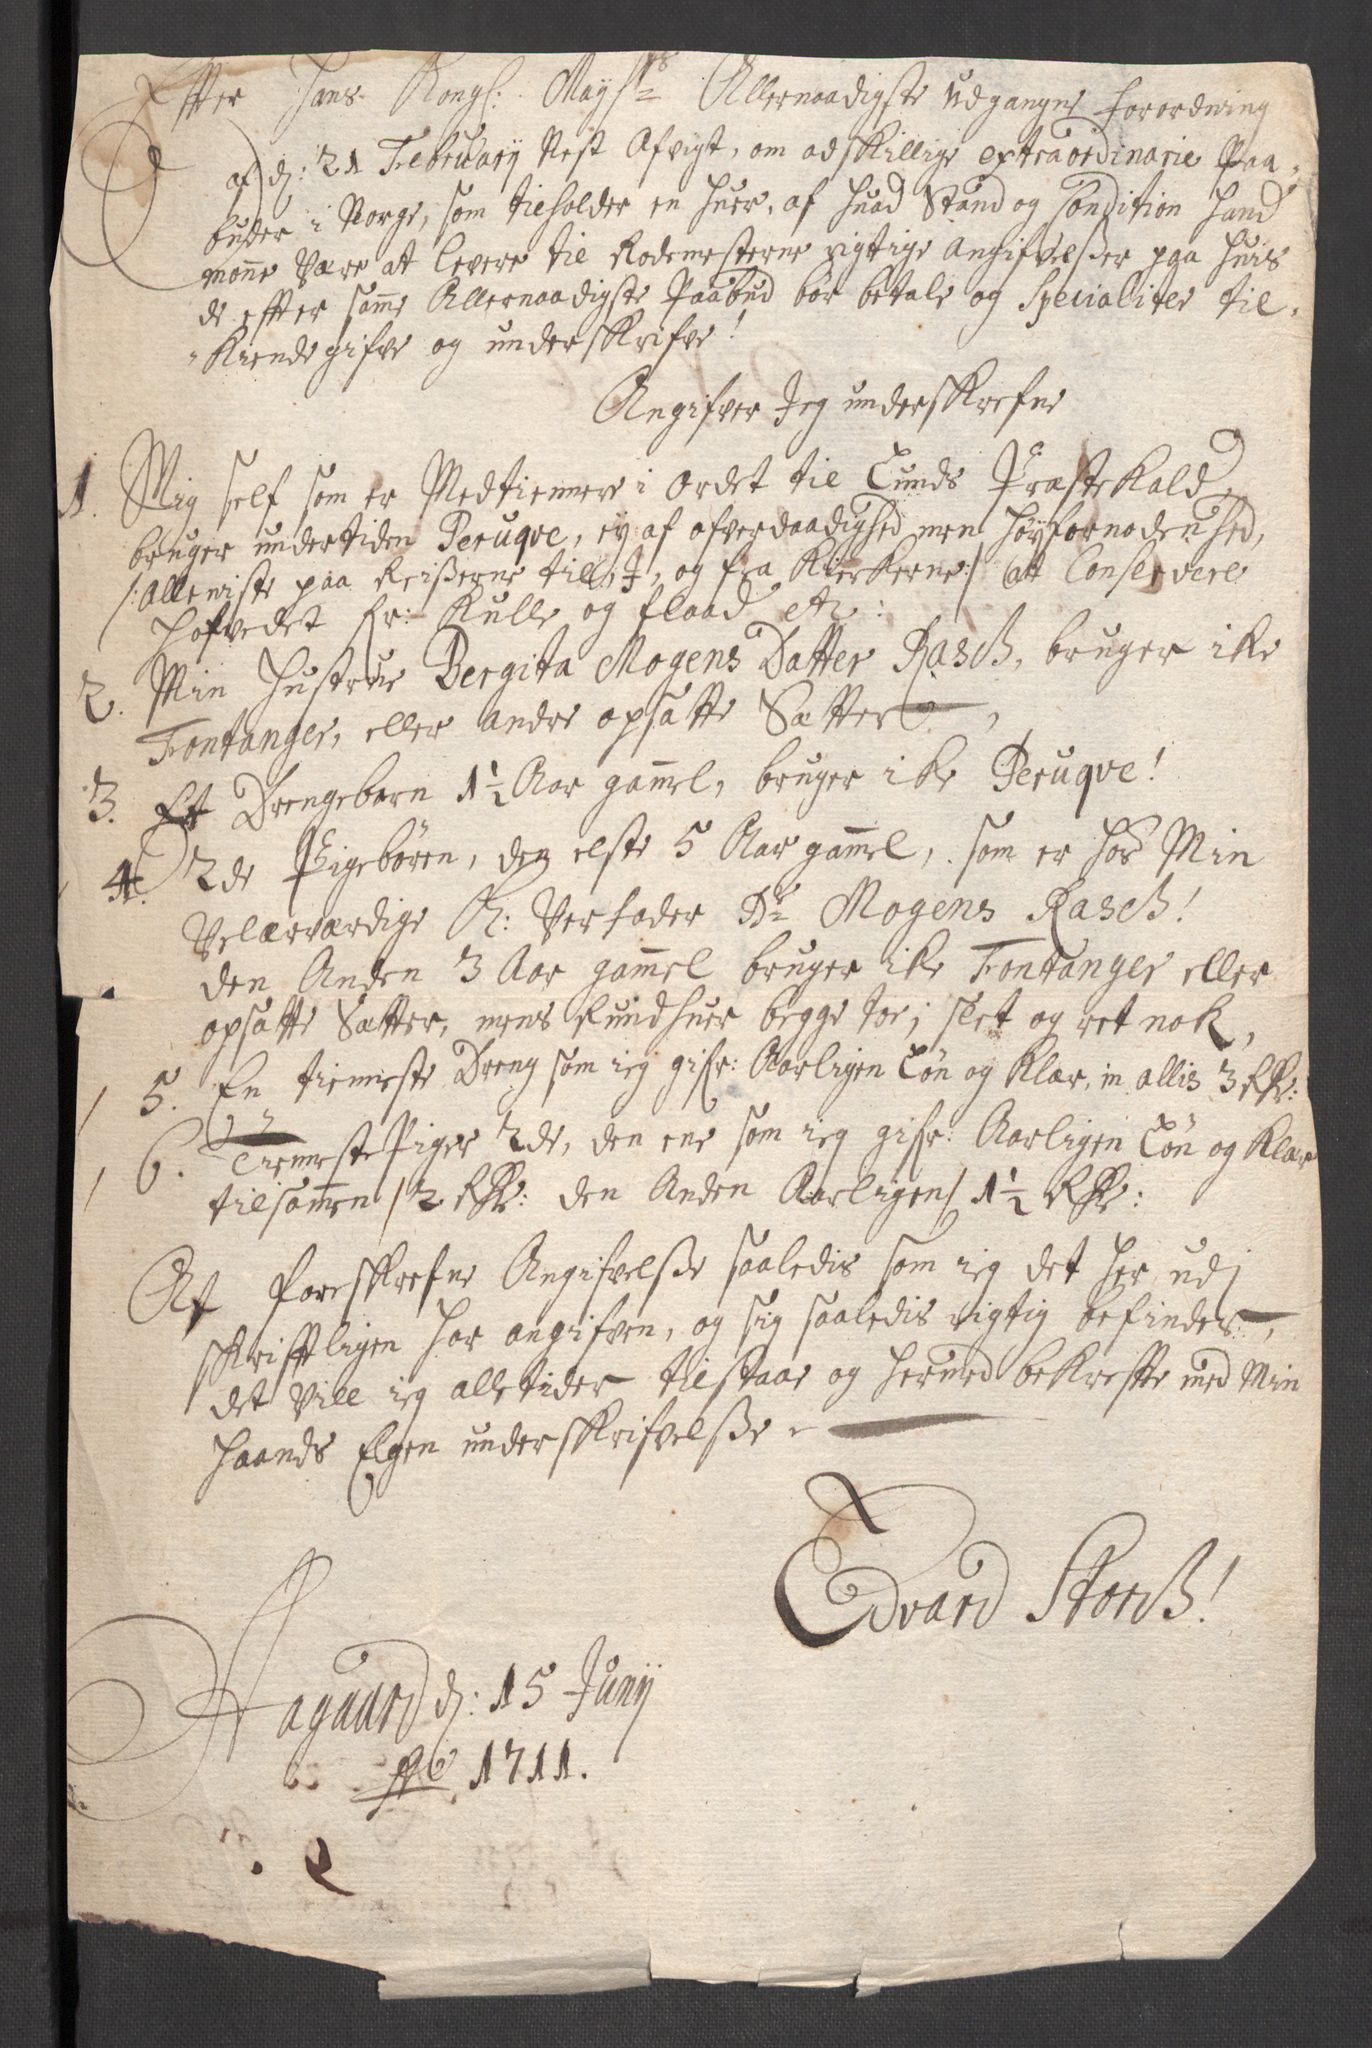 Effter Hans Kongl: Mayhts Allernaadigste udgangne forordning
af dj: 21 Februarij Nest Afvigt, om adskillige extraordinarie Paa-
buder i Norge, som tilholder en huer, af huad Stand og Condition hand
monne Være at levere til Rodemesterne rigtige Angifvelßer paa huis
de effter samme Allernaadigste Paabud bør betale og Specialiter til-
kiende gifve og underskrifve!
Angifver Jeg underskrefne
1. Mig self som er Medtiennere i ordet til Lunds Præstekald,
bruger undertiden Peruqve, ey af ofverdaadighed men høyfornødenhed,
/: Allewiste paa Reißerne till, og fra Kierkerne :/ att Conservere
Hofvedet fr: Kulle og flaad etc:
2. Min Hustrue Bergita Mogens Datter Rasch, bruger ike
Fontange, eller andre opsatte Sætter,
3. Et Drengebarn 1½ Aar gammel, bruger ike Peruqve!
4. 2de Pigebören, den elste 5 Aar gammel, som er hos Min
Velærværdige K: Verfader Hr Mogens Rasch!
den Anden 3 Aar gammel bruger ike Fontange eller
opsatte Sætter, mens Rundhuer begge toe, slet og ret nok,
5. En tienneste Dreng som ieg gifr: Aarligen Lön og Klær, in allis 3 Rdr:
6. Tienneste Piger 2de, den ene som ieg gifr: Aarligen Lön og Klær
tilsammen / 2 Rdr: den Anden Aarligen / 1½ Rdr:
At forskrefne Angifvelße saaledis som ieg det her udj
skrifftligen har angifven, og sig saaledis rigtig befinder,
det vill ieg alletider tilstaae og hermed bekreffte med Min
Haands Egen underskrifvelße
Edvard Storch!
Aagaard dj: 15 Junij
Ao 1711.